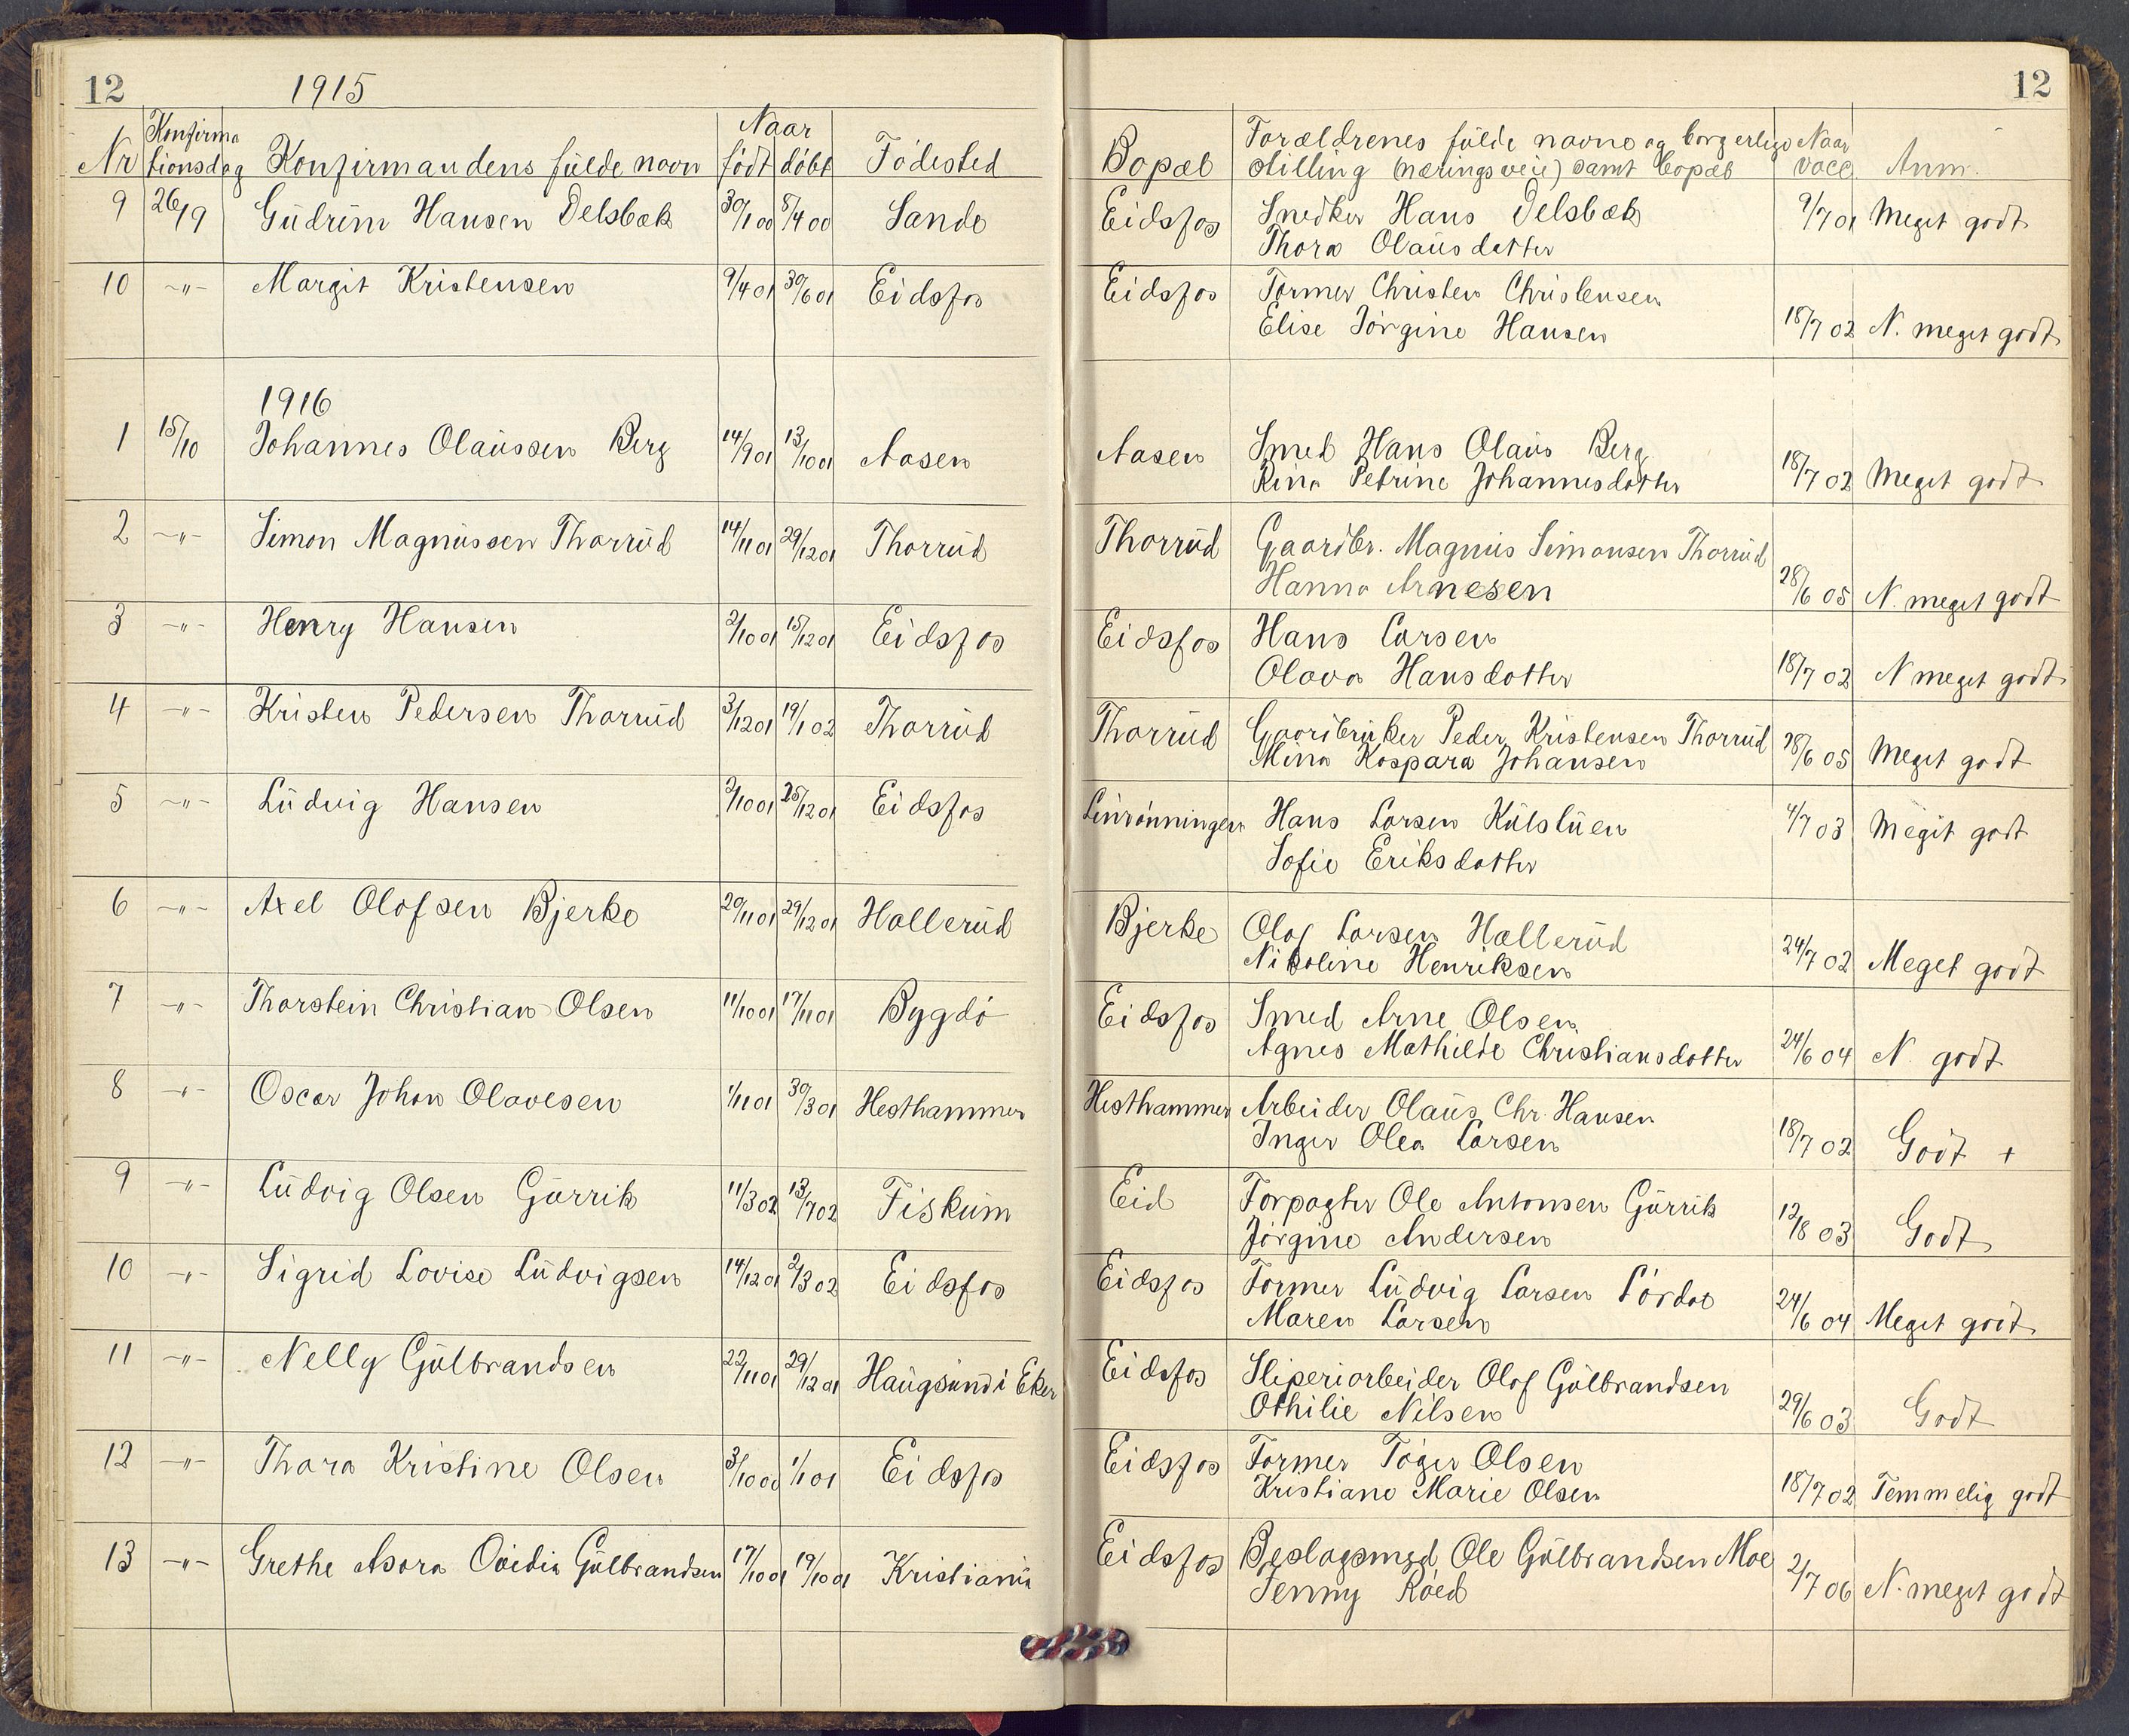 12 1915 12
Nr Konfirmationsdag Konfirmandens fülde navn Naar født døbt Fødested Bopæl Forældrenes fülde navne og borgerlige stilling (næringsveie) samt bopæl Naar vacc. Anm.
9 26/9 Güdrün Hansen Delsbæk 30/1 00 8/4 00 Sande Eidsfos Snedker Hans Delsbæk 9/7 01 Meget godt
Thora Olaüsdatter
10 -"- Margit Kristensen 9/4 01 30/6 01 Eidsfos Eidsfos Former Christen Christensen
Elise Jørgine Hansen 18/7 02 N. meget godt
1916
1 15/10 Johannes Olaüssen Berg 14/9 01 13/10 01 Aasen Aasen Smed Hans Olaüs Berg
Rina Petrine Johannesdatter 18/7 02 Meget godt
2 -"- Simon Magnüssen Thorrüd 14/11 01 29/12 01 Thorrüd Thorrüd Gaardbr. Magnüs Simonsen Thorrüd
Hanna Arnesen 28/6 05 N. meget godt
3 -"- Henry Hansen 2/10 01 15/12 01 Eidsfos Eidsfos Hans Larsen
Olava Hansdatter 18/7 02 N meget godt
4 -"- Kristen Pedersen Thorrüd 3/12 01 19/1 02 Thorrüd Thorrüd Gaardbrüker Peder Kristensen Thorrüd
Mina Kaspara Johansen 28/6 05 Meget godt
5 -"- Lüdvig Hansen 2/10 01 25/12 01 Eidsfos Linrønningen Hans Larsen Külslüen 4/7 03 Meget godt
Sofie Eriksdatter
6 -"- Axel Olafsen Bjerke 20/11 01 29/12 01 Hallerüd Bjerke Olaf Larsen Hallerüd
Nikoline Henriksen 24/7 02 Meget godt
7 -"- Thorstein Christian Olsen 11/10 01 17/11 01 Bygdø Eidsfos Smed Arne Olsen
Agnes Mathilde Christiansdatter 24/6 04 N. godt
8 -"- Oscar Johan Olavesen 1/11 01 30/3 01 Hesthammer Hesthammer Arbeider Olaüs Chr. Hansen
Inger Olea Larsen 18/7 02 Godt +
9 -"- Lüdvig Olsen Gürrik 11/3 02 13/7 02 Fisküm Eid Forpagter Ole Antonsen Gürrik
Jørgine Andersen 12/8 03 Godt
10 -"- Sigrid Lovise Lüdvigsen 14/12 01 2/3 02 Eidsfos Eidsfos Former Lüdvig Larsen Lørdal
Maren Larsen 24/6 04 Meget godt
11 -"- Nelly Gülbrandsen 22/11 01 29/12 01 Haügsünd i Eker Eidsfos Sliperiarbeider Olaf Gülbrandsen
Othilie Nilsen 29/6 03 Godt
12 -"- Thora Kristine Olsen 3/10 00 1/1 01 Eidsfos Eidsfos Former Tøger Olsen
Kristiane Marie Olsen 18/7 02 Temmelig godt
13 -"- Grethe Asora Ovidia Gülbrandsen 17/10 01 19/10 01 Kristiania Eidsfos Beslagsmed Ole Gülbrandsen Moe
Jenny Røed 2/7 06 N. meget godt